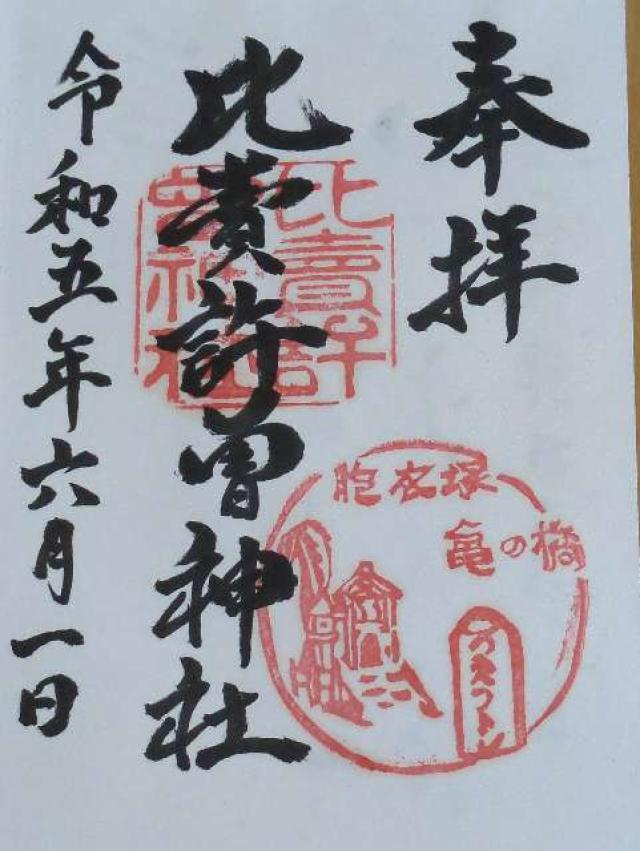 奉拝
比賣許曽神社
比賣許曽神社
令和五年六月一日
胞衣塚
亀の橋